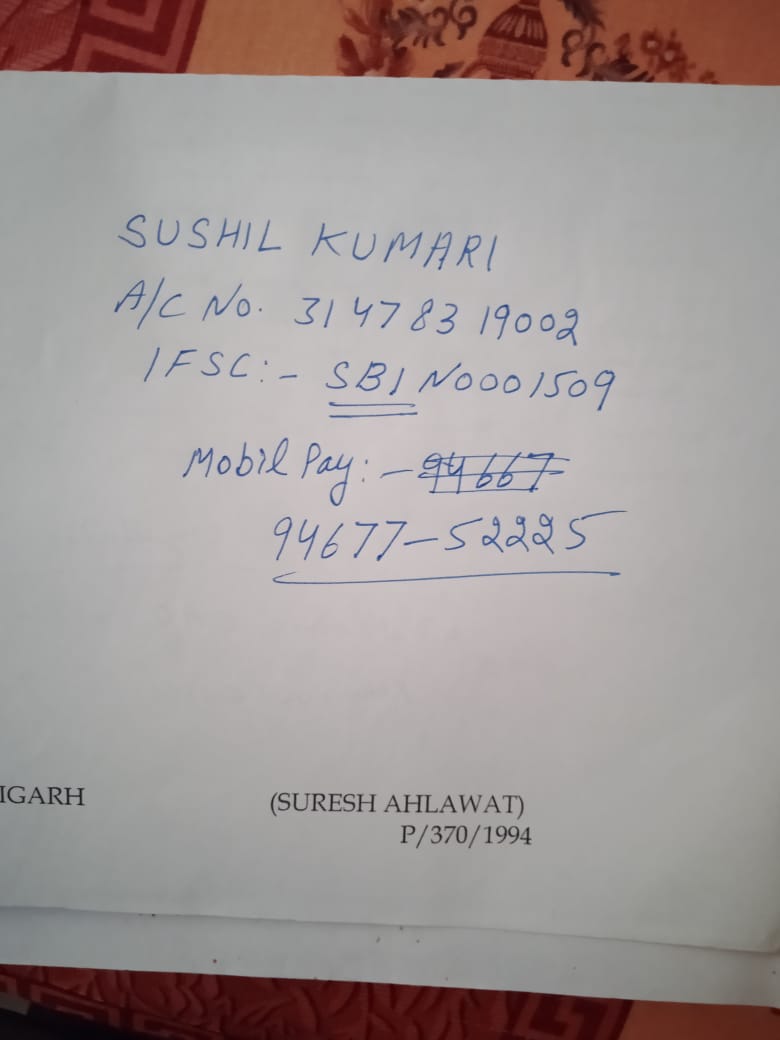 SUSHIL KUMARI
A/C No. 31478319002
IFSC:- SBIN0001509
Mobil Pay:- 94667
94677-52225
IGARH
(SURESH AHLAWAT)
P/370/1994